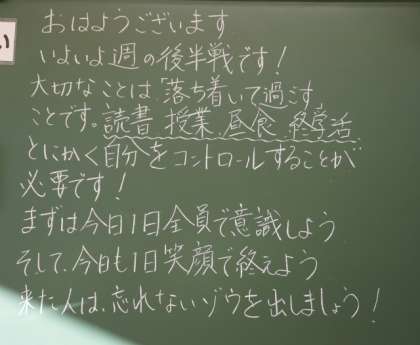 い
おはようございます
いよいよ週の後半戦です！
大切なことは「落ち着いて過ごす
ことです。読書 授業 昼食 終学活
とにかく自分をコントロールすることが
必要です！
まずは今日1日全員で意識しよう
そして、今日も1日笑顔で終えよう
来た人は、忘れないゾウを出しましょう！